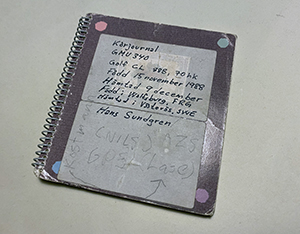 Körjournal
GMU 340
Golf CL -88B, 70hk
Född 15 november 1988
Hämtad 9 december
Född i Wolfsburg, FRG
Hämtad i Västerås, SWE
Hans Sundgren